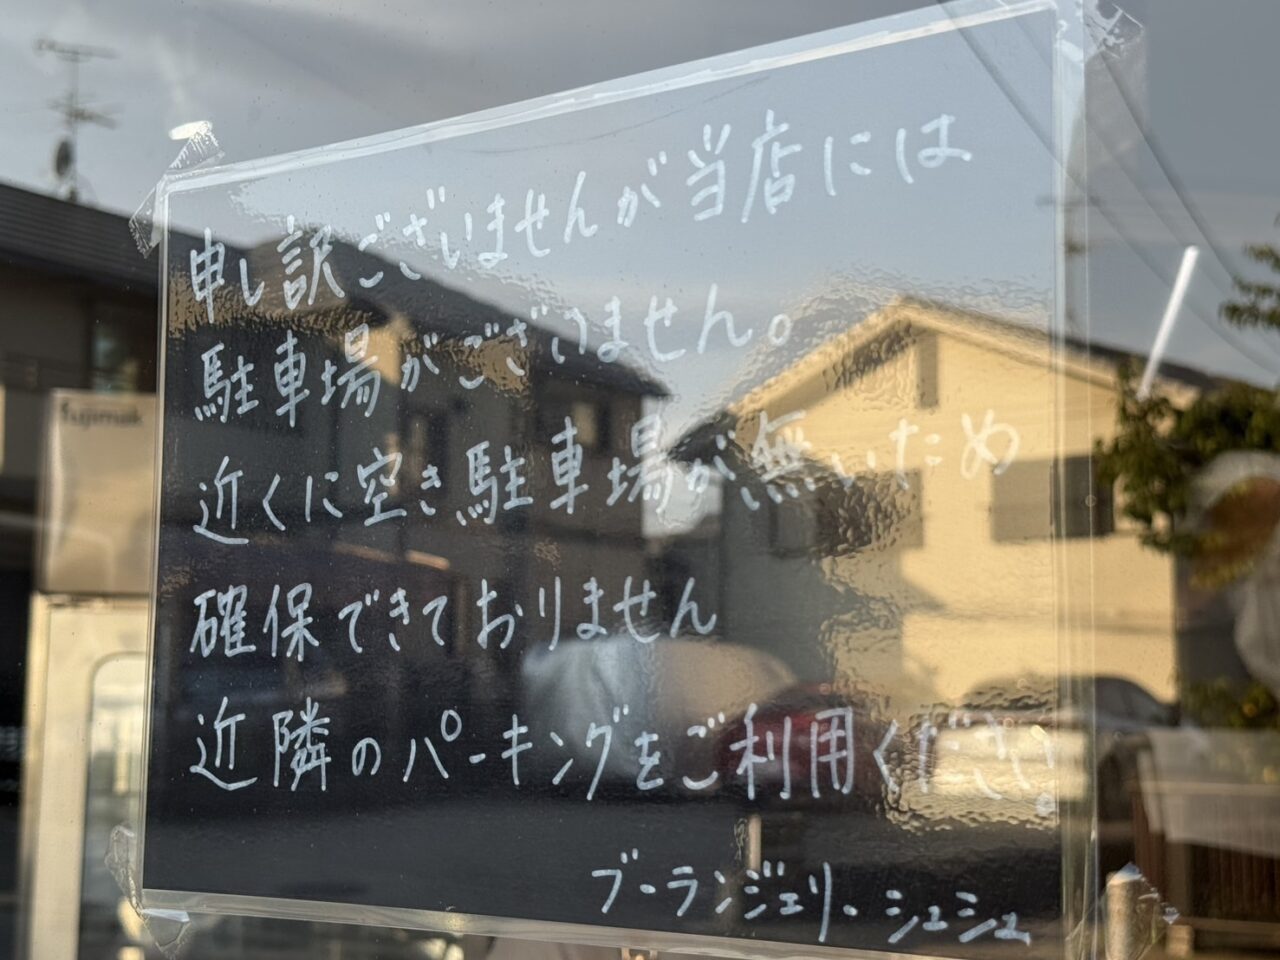 申し訳ございませんが当店には
駐車場がございません。
近くに空き駐車場が無いため
確保できておりません
近隣のパーキングをご利用ください。
ブーランジェリーシュシュ
fujimak